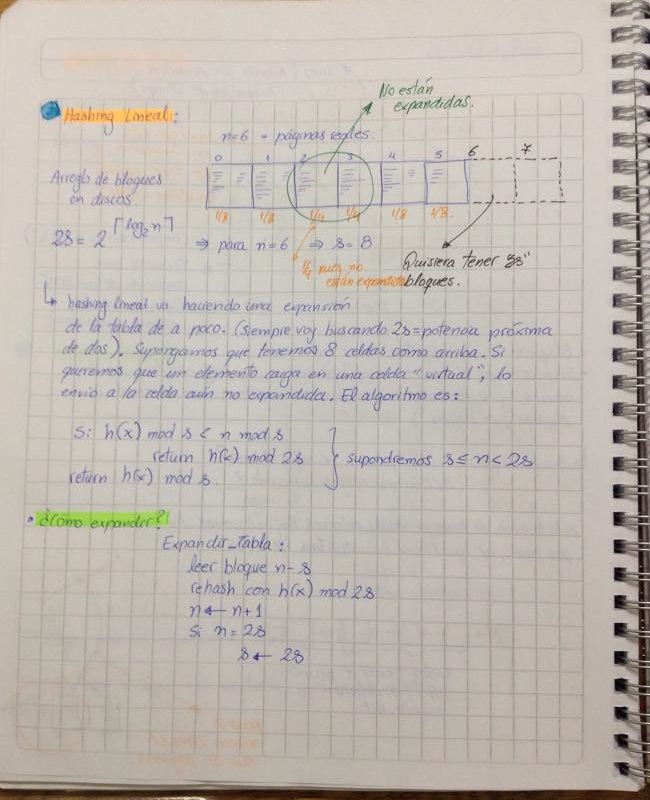 Hashing Lineal:
No están
expandidas.
n=6 = páginas reales.
0 1 2 3 4 5 6 7
Arreglo de bloques
en discos
1/8 1/8 1/4 1/4 1/8 1/8.
2s = 2^⌈log₂n⌉ ⇒ para n=6 ⇒ s=8
1/4 pues no
están expandidas
Quisiera tener "8"
bloques.
↳ hashing lineal va haciendo una expansión
de la tabla de a poco. (siempre voy buscando 2s=potencia próxima
de dos). Supongamos que tenemos 8 celdas como arriba. Si
queremos que un elemento caiga en una celda "virtual", lo
envío a la celda aún no expandida. El algoritmo es:
Si h(x) mod s < n mod s
return h(x) mod 2s
return h(x) mod s.
} supondremos s ≤ n < 2s
• ¿Cómo expander?
Expandir_tabla:
leer bloque n-s
rehash con h(x) mod 2s
n ← n+1
Si n = 2s
s ← 2s